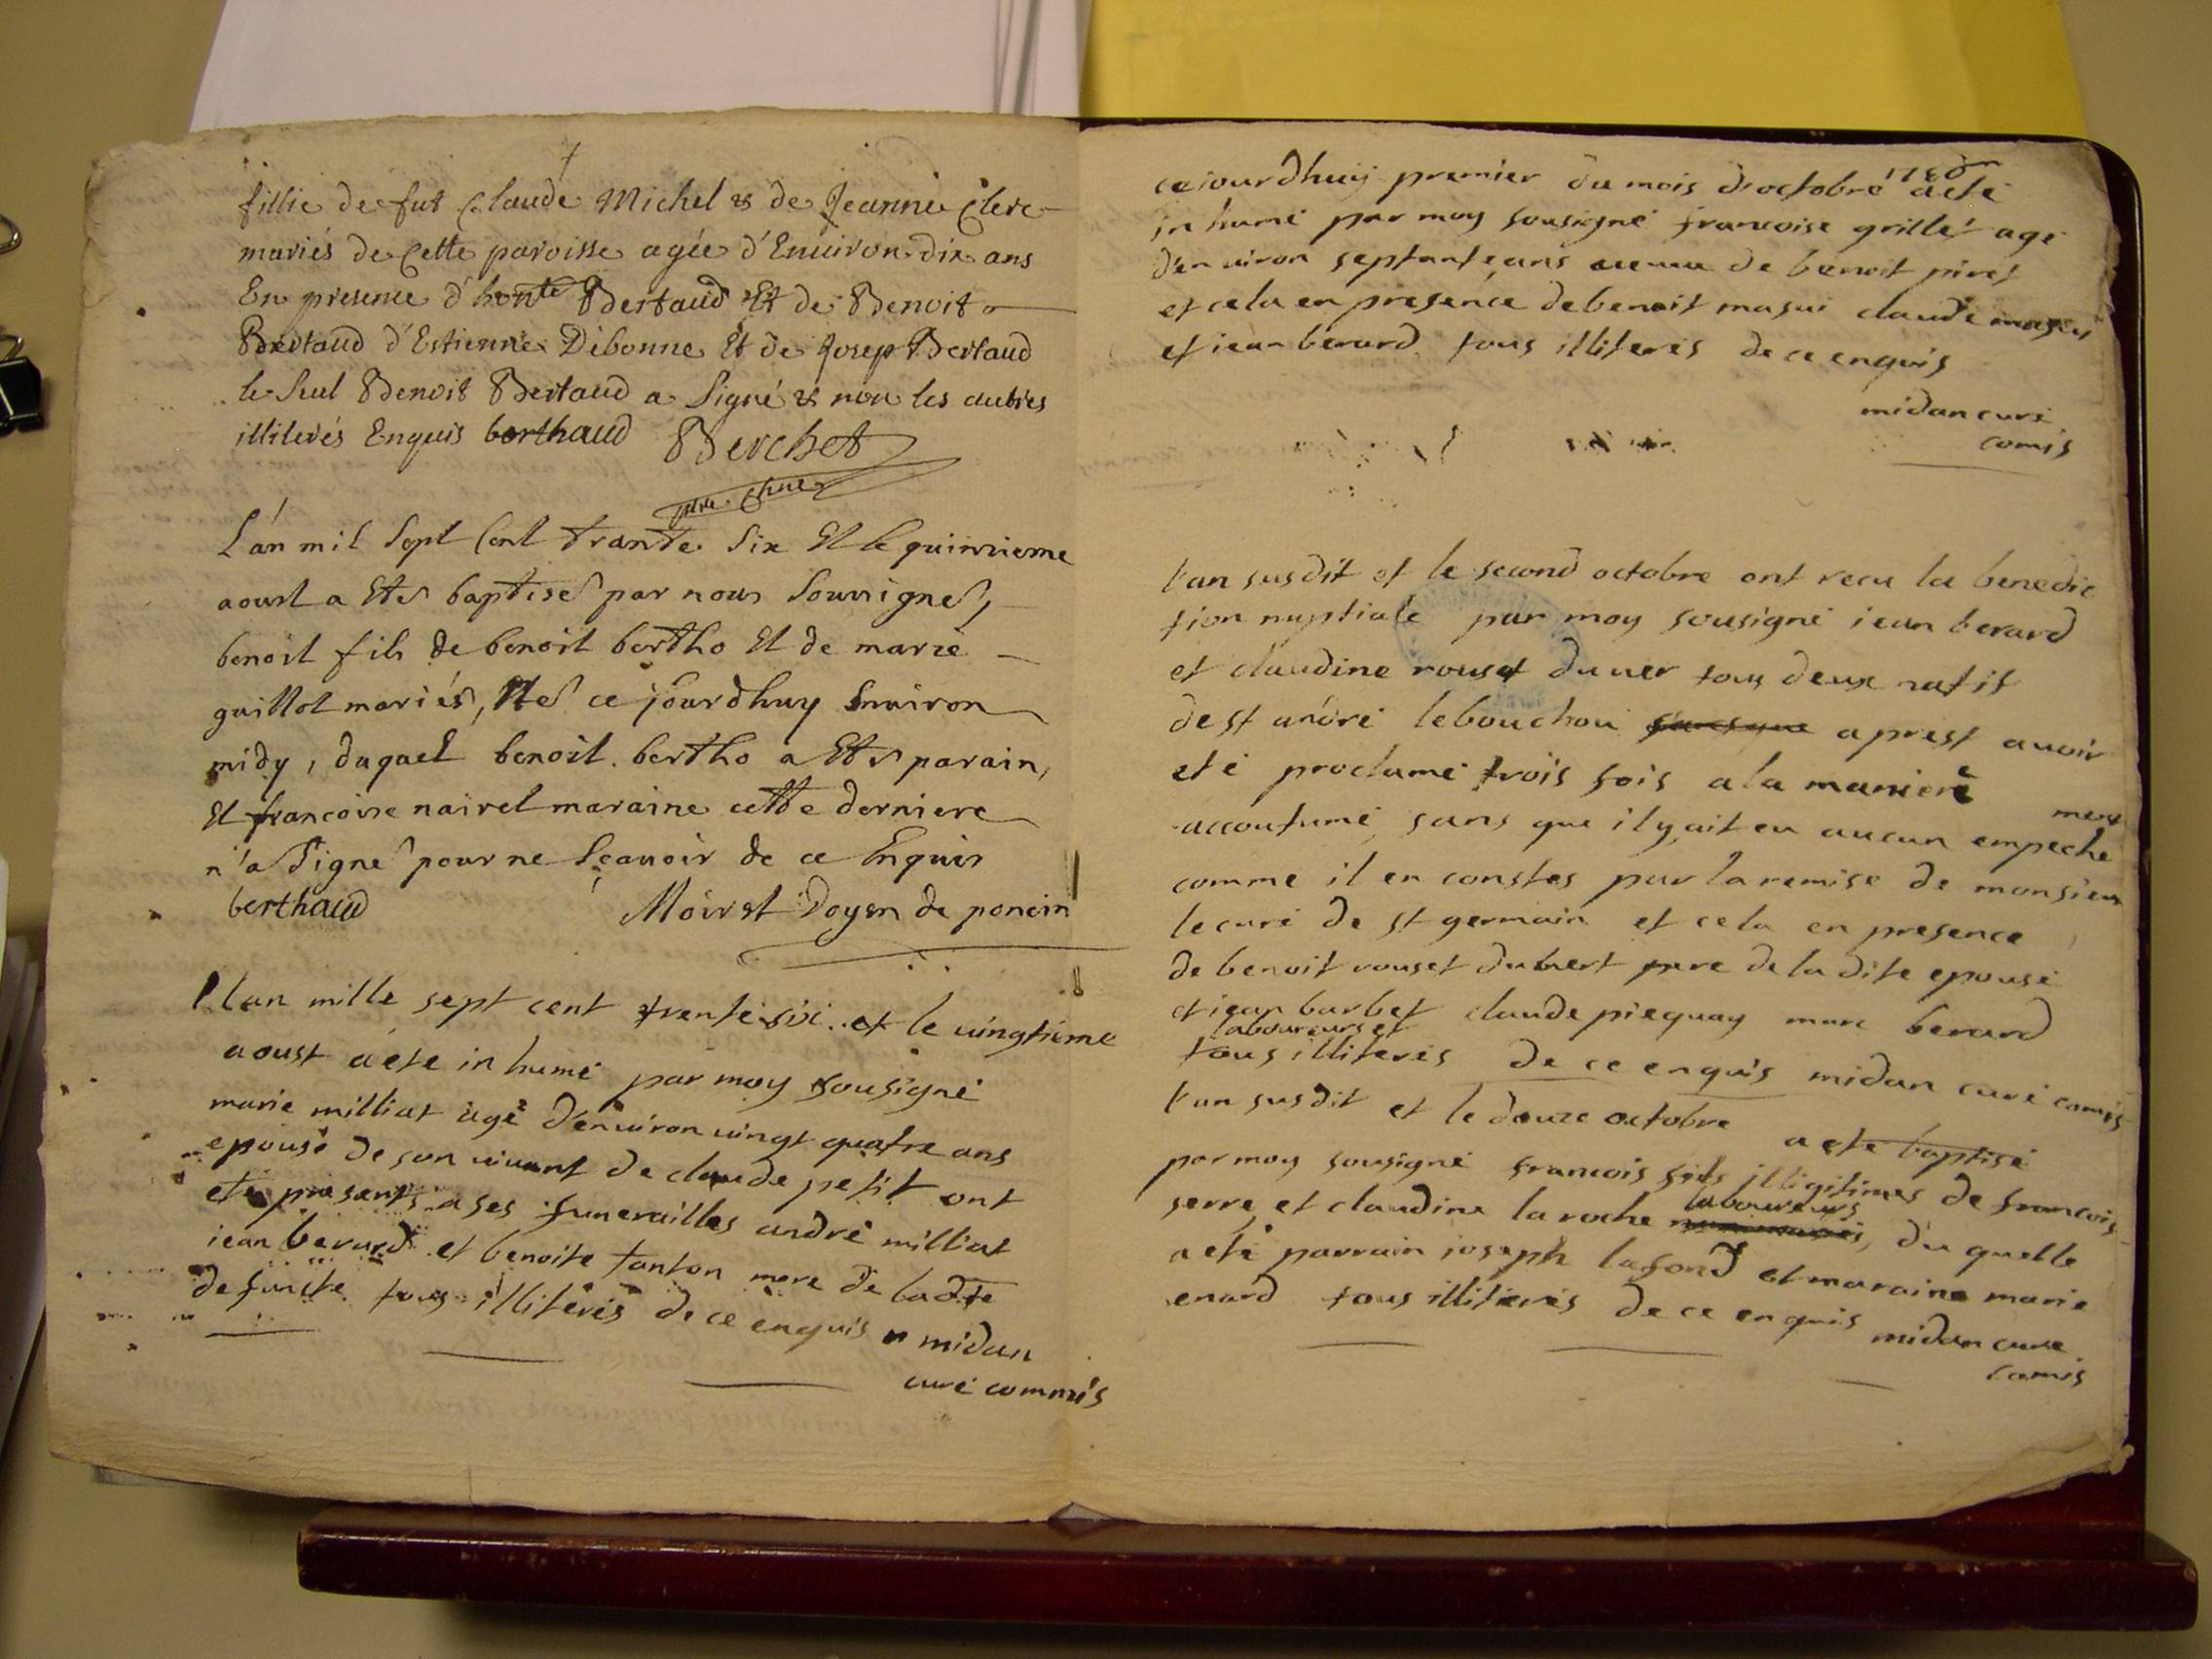 fillie de fut Claude Michel & de Jeanne Clerc
mariés de Cette paroisse agée d'Environ dix ans
En presence d'honte Bertaud Et de Benoit
Bertaud d'Estienne Debonne Et de Josep Bertaud
le Seul Benoit Bertaud a Signé & non les autres
illiterés Enquis berthaud Berchet
L'an mil Sept Cent trante Six Et le quinzieme
aoust a Ete baptisé par nous Soussigné,
benoit fils de benoit bertho Et de marie
guillot mariés, Né ce jourdhuy Environ
midy, duquel benoit bertho a Eté parain,
Et francoise nairel maraine cette derniere
n'a Signé pour ne Scavoir de ce Enquis
berthaud Moirst Doyen de poncin
Lan mille sept cent trente six et le vingtieme
aoust aété in humé par moy sousigné
marie milliat agé d'environ vingt quatre ans
epouse de son vivant de claude petit ont
eté présents a ses funerailles andré milliat
iean berard et benoite tanton mere de ladte
defuncte tous illiterés de ce enquis midan
curé commis
ceiourdhuy premier du mois d'octobre 1736 aeté
in humé par moy sousigné francoise grillet agé
d'environ septante ans de benoit piret
et cela en presence de benoit masui claude masui
et iean berard tous illiterés de ce enquis
midan curé
comis
l'an susdit et le second octobre ont recu la benedic
tion nuptiale par moy sousigné iean berard
et claudine rouset duver tous deux natif
de st andré lebouchou aprest avoir
eté proclamé trois fois a la maniere
accoutumé sans que ilyait eu aucun empeche ment
comme il en constes par la remise de monsieur
le curé de st germain et cela en presence
de benoit rouset duvert pere de la dite epouse
et iean barbet claude piequay marc berard
laboureurs et
tous illiterés de ce enquis midan curé comis
l'an susdit et le douze octobre a eté baptisé
par moy sousigné francois fils illigitimes de francois
serre et claudine la roche laboureurs, du quelle
a eté parrain ioseph lafond et maraine marie
enard tous illiterés de ce enquis midan curé
comis